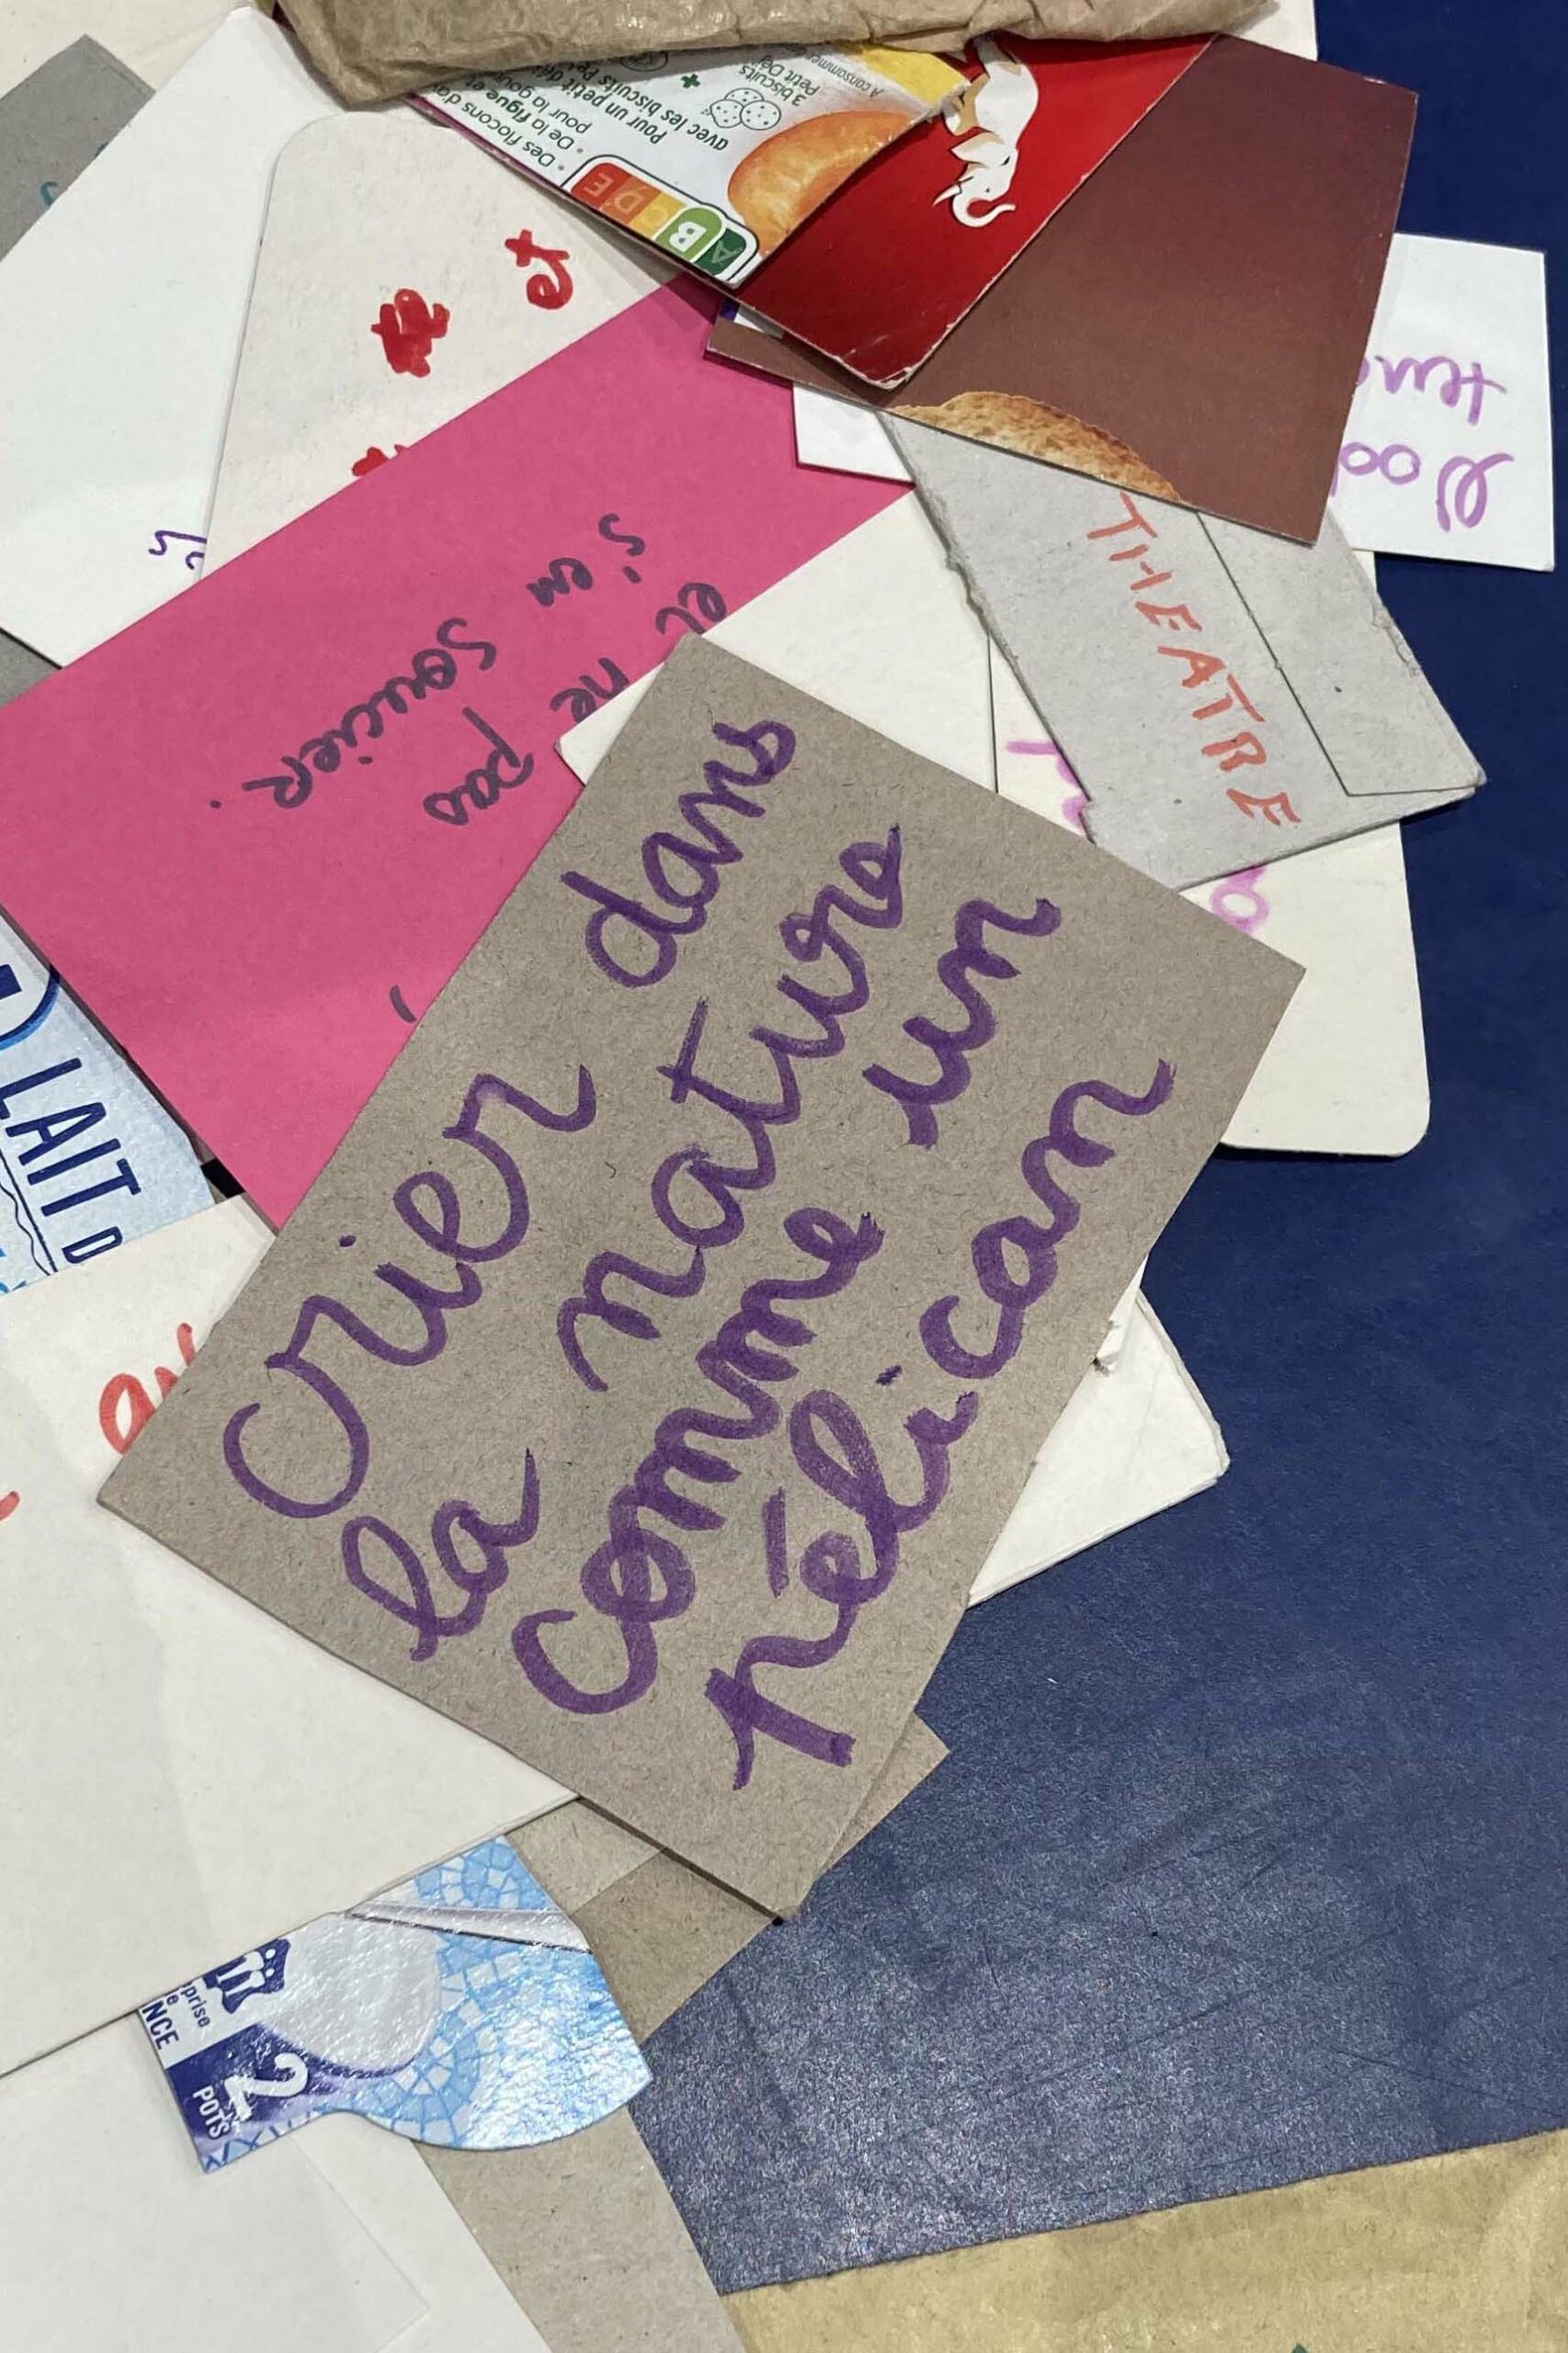 crier dans
la nature
comme un
pélican
et ne
s'en
pas
soucier.
THEATRE
et
LAIT
2
POTS
• Des flocons
• De la figue et
pour la
Pour un petit
avec les biscuits
+
3 biscuits
Petit
A consommer
A B C D E